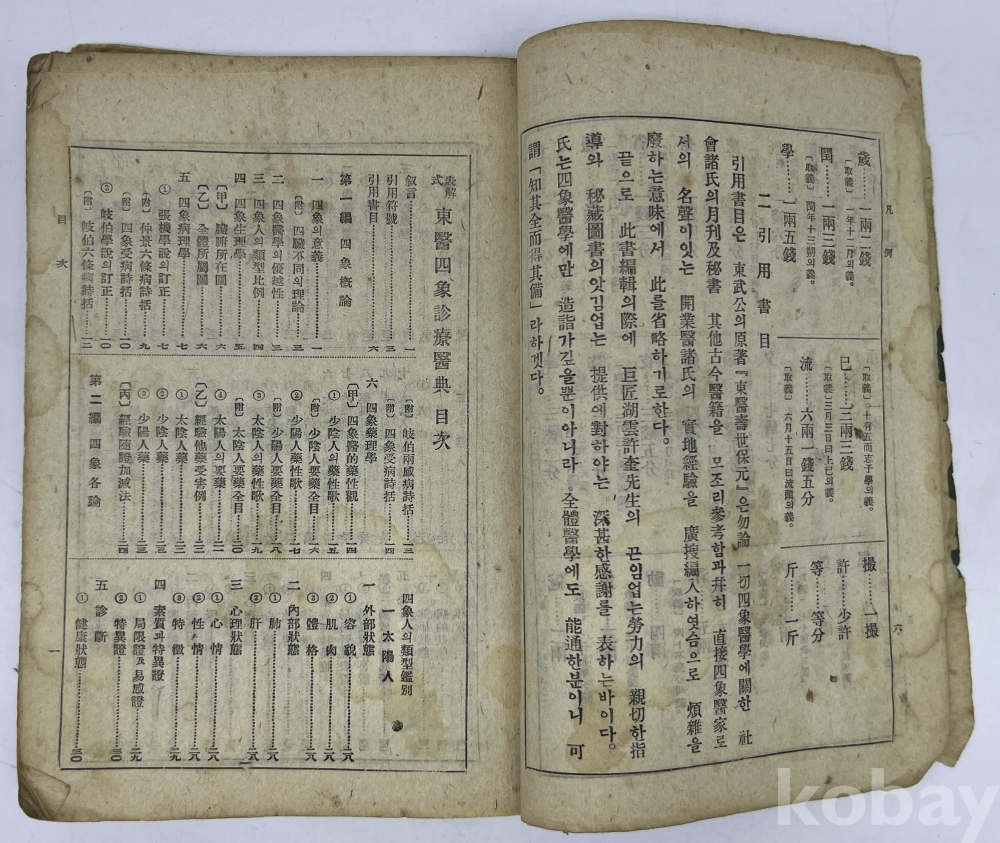 凡例
六
歲……一兩二錢
〔取義〕 一年十二月의義。
閏……一兩三錢
〔取義〕 閏年十三朔의義。
學……一兩五錢
〔取義〕 十有五而志于學의義。
巳……三兩三錢
〔取義〕 三月三日曰上巳의義。
流……六兩一錢五分
〔取義〕 六月十五日曰流頭의義。
撮……一撮
許……少許
等分……等分
斤……一斤
二 引用書目
引用書目은 東武公의原著『東醫壽世保元』은勿論 一切四象醫學에關한 社
會諸氏의月刊及秘書 其他古今醫籍을 모조리參考함과幷히 直接四象醫家로
서의 名聲이잇는 開業醫諸氏의 實地經驗을 廣搜編入하엿슴으로 煩雜을
廢하는意味에서 此를省略하기로한다。
끝으로 此書編輯의際에 巨匠湖雲許金先生의 끈임업는勞力의 親切한指
導와 秘藏圖書의앗김업는 提供에對하야는 深甚한感謝를 表하는바이다。
氏는四象醫學에만 造詣가깊을뿐이아니라 全體醫學에도 能通한분이니 可
謂「知其全而得其備」라하겟다。
表解式 東醫四象診療醫典 目次
叙言……一
引用符號……三
引用書目……六
第一編 四象槪論
一 四象의意義……一
〔附〕 四臟不同의理論……三
二 四象醫學의優越性……三
三 四象人의類型比例……四
四 四象生理學……五
〔甲〕 臟腑所在圖……六
〔乙〕 全體所屬圖……六
五 四象病理學……七
① 張機學說의訂正……七
〔附〕 仲景六條病詩括……九
〔附〕 四象受病詩括……一〇
② 岐伯學說의訂正……一〇
〔附〕 岐伯六條病詩括……一二
〔附〕 岐伯兩感病詩括……一三
〔附〕 四象受病詩括……一四
六 四象藥理學
〔甲〕 四象醫的藥性觀……一四
① 少陰人의藥性歌……一五
〔附〕 少陰人要藥全目……一六
② 少陽人의藥性歌……一七
〔附〕 少陽人要藥全目……一八
③ 太陰人의藥性歌……一九
〔附〕 太陰人要藥全目……二〇
④ 太陽人의要藥……二一
〔乙〕 經驗他藥受害例……二二
① 太陰人……二三
② 少陽人……二三
③ 少陰人……二三
〔丙〕 經驗隨證加減法……二四
第二編 四象各論
四象人의類型鑑別
一 太陽人
一 外部狀態
① 容貌……二八
② 肌肉……二八
③ 體格……二八
二 內部狀態
① 肺……二八
② 肝……二八
三 心理狀態
① 心情……二八
② 性情……二八
③ 特徵……二九
四 素質과特異證
① 局限證及易感證……二九
② 特異證……三〇
五 診斷
① 健康狀態……三〇
目次
一
kobay